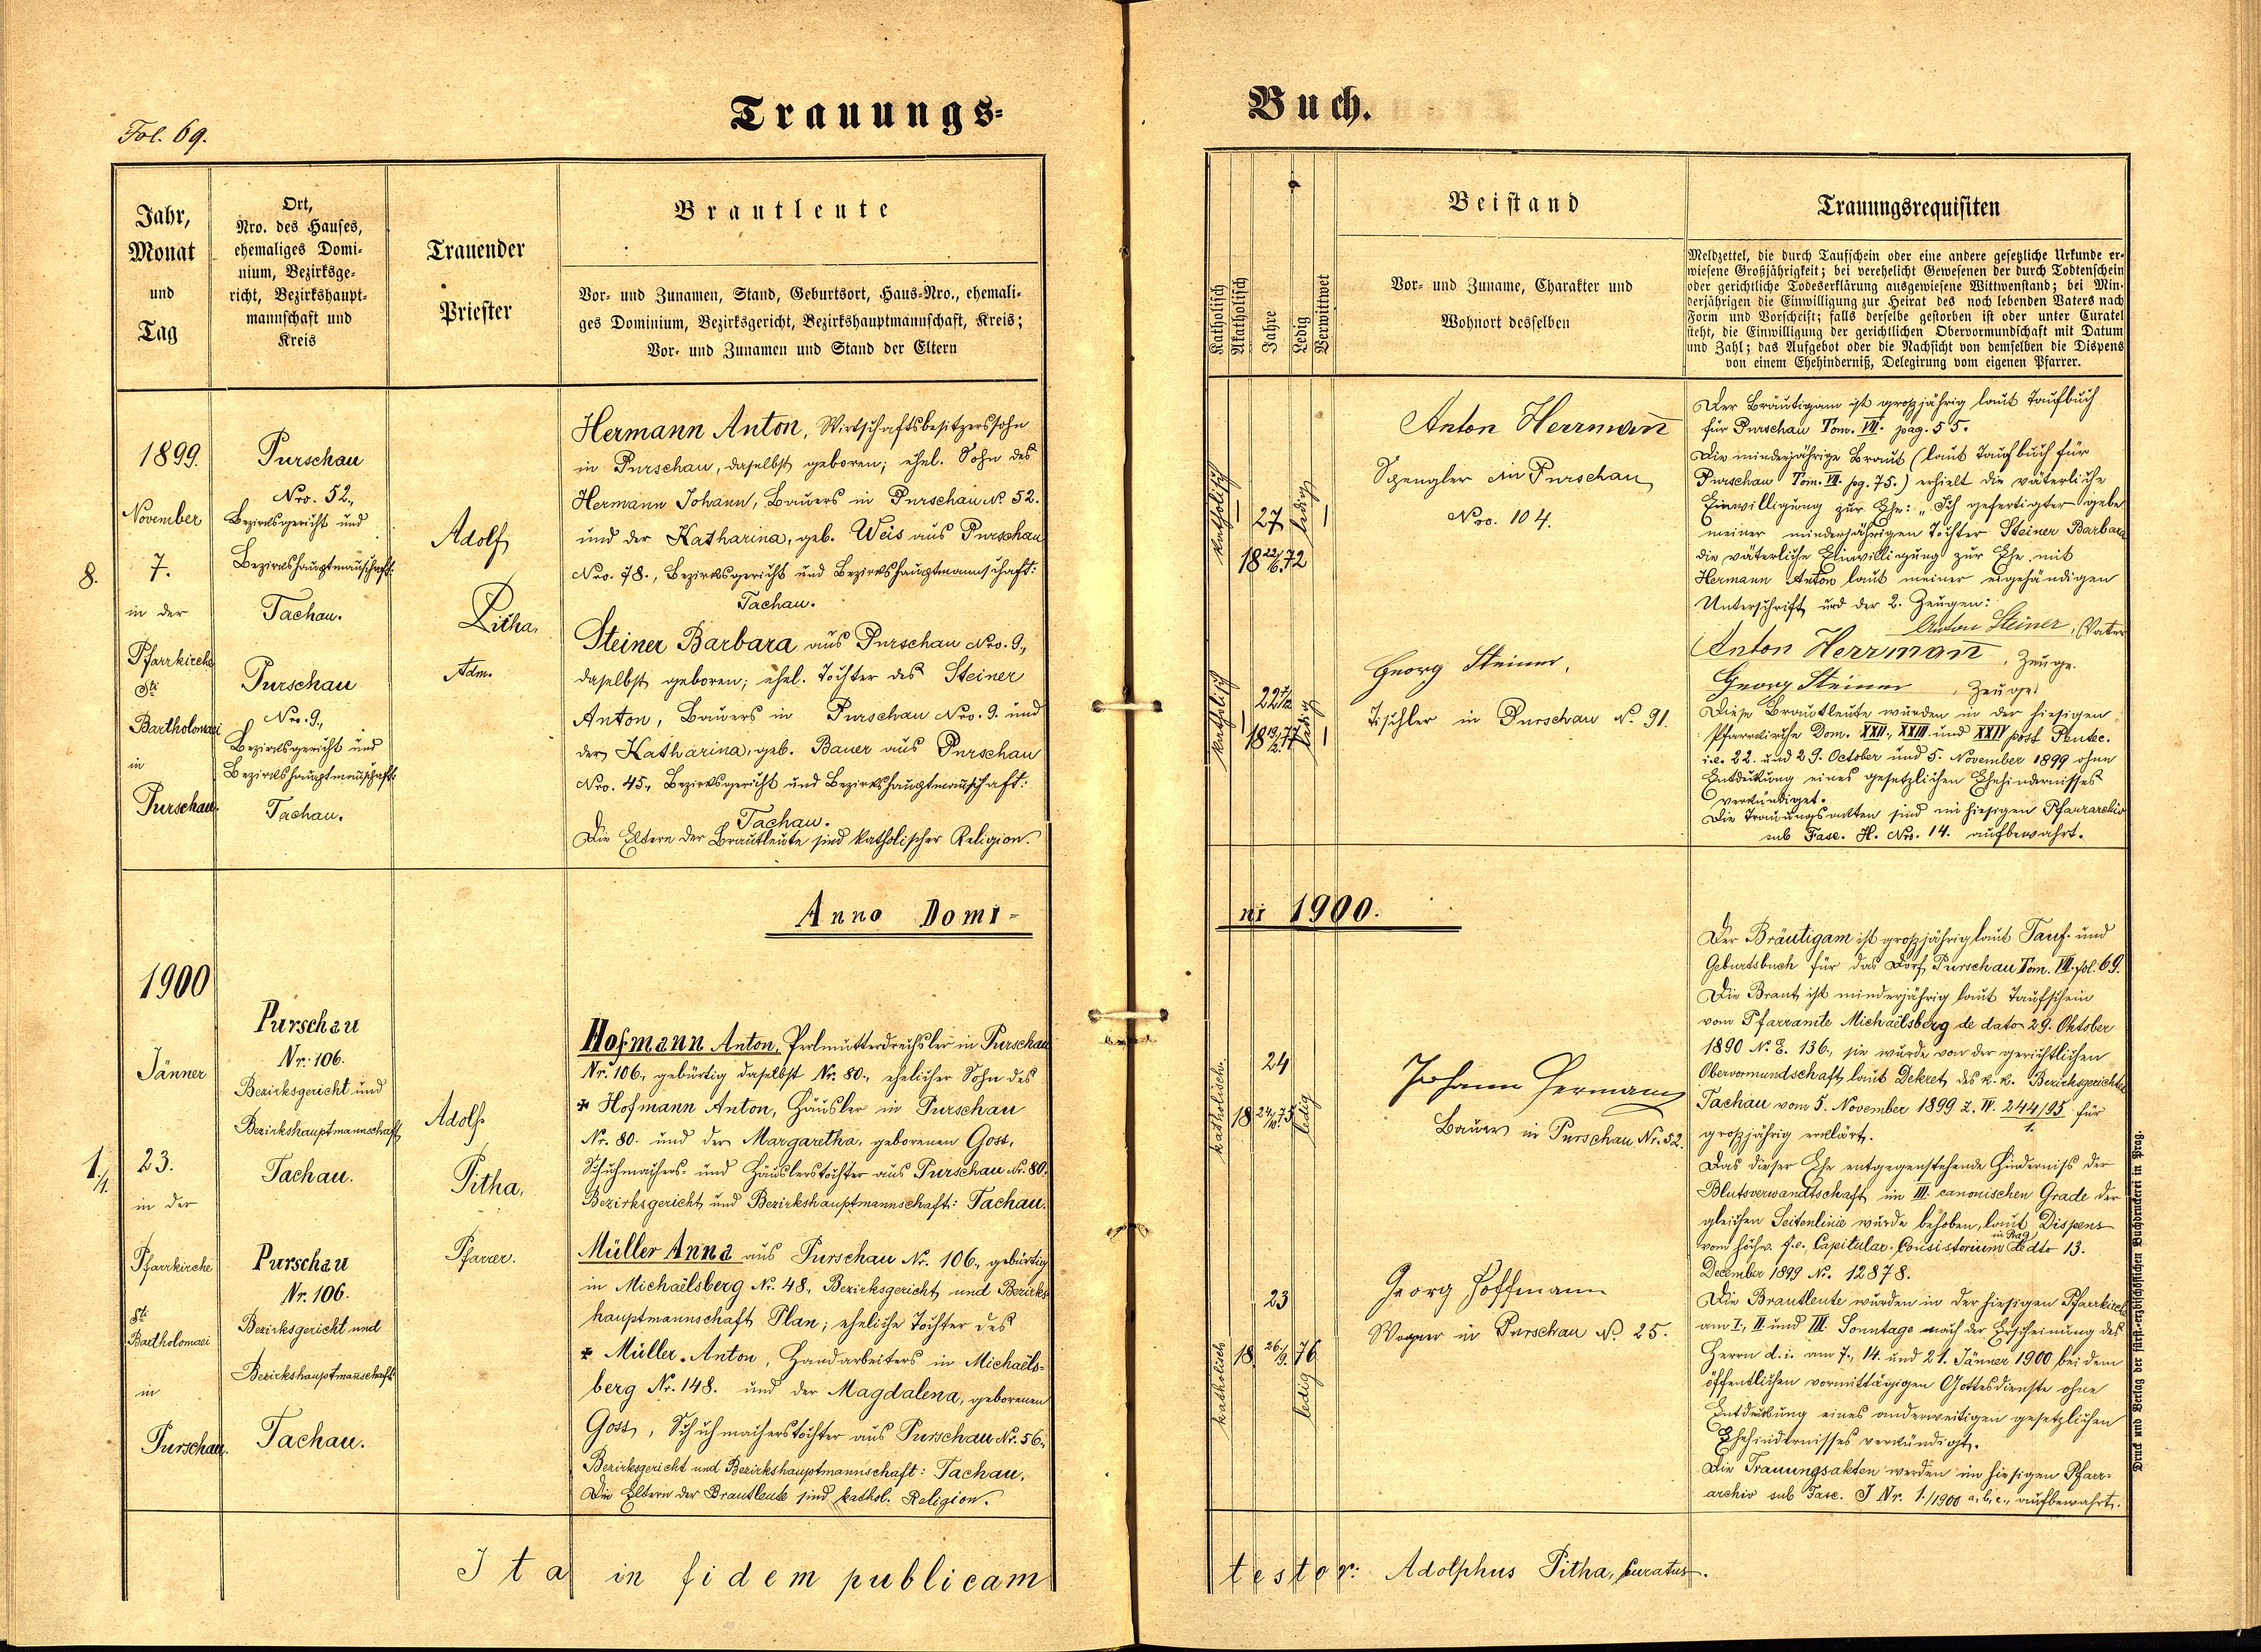 Fol. 69.
Trauungs-
Jahr,
Monat
und
Tag
Ort,
Nro. des Hauses,
ehemaliges Domi-
nium, Bezirksge-
richt, Bezirkshaupt-
mannschaft und
Kreis
Trauender
Priester
Brautleute
Vor- und Zunamen, Stand, Geburtsort, Haus-Nro., ehemali-
ges Dominium, Bezirksgericht, Bezirkshauptmannschaft, Kreis;
Vor- und Zunamen und Stand der Eltern
8.
1899.
November
7.
in der
Pfarrkirche
Sti
Bartholomaei
in
Purschau
Purschau
Nro. 52.,
Bezirksgericht und
Bezirkshauptmannschaft:
Tachau.
Purschau
Nro. 9.,
Bezirksgericht und
Bezirkshauptmannschaft:
Tachau.
Adolf
Pitha,
Adm.
Hermann Anton, Wirtschaftsbesitzerssohn
in Purschau, daselbst geboren; ehel. Sohn des
Hermann Johann, Bauers in Purschau No 52.
und der Katharina, geb. Weis aus Purschau
Nro. 78., Bezirksgericht und Bezirkshauptmannschaft:
Tachau.
Steiner Barbara aus Purschau Nro. 9.,
daselbst geboren; ehel. Tochter des Steiner
Anton, Bauers in Purschau Nro. 9. und
der Katharina, geb. Bauer aus Purschau
Nro. 45., Bezirksgericht und Bezirkshauptmannschaft:
Tachau.
Die Eltern der Brautleute sind katholischer Religion.
Anno Domi-
1./1.
1900
Jänner
23.
in der
Pfarrkirche
Sti
Bartholomaei
in
Purschau.
Purschau
Nr. 106.
Bezirksgericht und
Bezirkshauptmannschaft
Tachau.
Purschau
Nr. 106.
Bezirksgericht und
Bezirkshauptmannschaft
Tachau.
Adolf
Pitha,
Pfarrer.
Hofmann Anton, Perlmutterdrechsler in Purschau
Nr. 106., gebürtig daselbst Nr. 80., ehelicher Sohn des
✠ Hofmann Anton, Häusler in Purschau
Nr. 80. und der Margaretha, geborenen Goss,
Schuhmachers- und Häuslerstochter aus Purschau Nr. 80.
Bezirksgericht und Bezirkshauptmannschaft: Tachau.
Müller Anna aus Purschau Nr. 106., gebürtig
in Michaëlsberg Nr. 48., Bezirksgericht und Bezirks
hauptmannschaft Plan; eheliche Tochter des
✠ Müller Anton, Handarbeiters in Michaëls-
berg Nr. 148. und der Magdalena, geborenen
Goss, Schuhmacherstochter aus Purschau Nr. 56.,
Bezirksgericht und Bezirkshauptmannschaft: Tachau.
Die Eltern der Brautleute sind kathol. Religion.
Ita in fidem publicam
Buch.
Katholisch
Akatholisch
Jahre
Ledig
Verwittwet
Beistand
Vor- und Zuname, Charakter und
Wohnort desselben
Trauungsrequisiten
Meldzettel, die durch Taufschein oder eine andere gesetzliche Urkunde er-
wiesene Großjährigkeit; bei verehelicht Gewesenen der durch Todtenschein
oder gerichtliche Todeserklärung ausgewiesene Wittwenstand; bei Min-
derjährigen die Einwilligung zur Heirat des noch lebenden Vaters nach
Form und Vorschrift; falls derselbe gestorben ist oder unter Curatel
steht, die Einwilligung der gerichtlichen Obervormundschaft mit Datum
und Zahl; das Aufgebot oder die Nachsicht von demselben die Dispens
von einem Ehehinderniß, Delegirung vom eigenen Pfarrer.
katholisch
27
18 22/6. 72
ledig
Anton Herrmann
Spengler in Purschau
Nro. 104.
katholisch
22
18 77
ledig
Georg Steiner,
Tischler in Purschau No. 91.
Der Bräutigam ist großjährig laut Taufbuch
für Purschau Tom. VII. pag. 55.
Die minderjährige Braut (laut Taufbuch für
Purschau Tom. VII. pg. 75.) erhielt die väterliche
Einwilligung zur Ehe: „Ich gefertigter gebe
meiner minderjährigen Tochter Steiner Barbara
die väterliche Einwilligung zur Ehe mit
Hermann Anton laut meiner eigehändigen
Unterschrift und der 2. Zeugen:
Anton Steiner, Vater
Anton Herrmann, Zeuge.
Georg Steiner, Zeuge.
Diese Brautleute wurden in der hiesigen
Pfarrkirche Dom. XXII., XXIII. und XXIV post Pentec.
i.e. 22. und 29. October und 5. November 1899 ohne
Entdeckung eines gesetzlichen Ehehindernisses
verkündiget.
Die Trauungsakten sind im hiesigen Pfarrarchiv
sub Fasc. H. Nro. 14. aufbewahrt.
ni 1900.
katholisch.
24
18 24/10. 75
ledig
Johann Hermann
Bauer in Purschau Nr. 52.
katholisch
23
18 26./9. 76
ledig
Georg Hoffmann
Wagner in Purschau No. 25.
Der Bräutigam ist großjährig laut Tauf- und
Geburtsbuch für das Dorf Purschau Tom. VII. fol. 69.
Die Braut ist minderjährig laut Taufschein
vom Pfarramte Michaëlsberg de dato 29. Oktober
1890 No. E. 136., sie wurde von der gerichtlichen
Obervormundschaft laut Dekret des k. k. Bezirksgerichtes
Tachau vom 5. November 1899 Z. IV. 244/95/1. für
großjährig erklärt.
Das dieser Ehe entgegenstehende Hinderniß der
Blutsverwandtschaft im III. canonischen Grade der
gleichen Seitenlinie wurde behoben, laut Dispens
vom hochw. f.e. Capitular-Consistorium in Prag de dto 13.
December 1899 No. 12878.
Die Brautleute wurden in der hiesigen Pfarrkirche
am I., II. und III. Sonntage nach der Erscheinung des
Herrn d. i. am 7., 14. und 21. Jänner 1900 bei dem
öffentlichen vormittägigen Gottesdienste ohne
Entdeckung eines anderweitigen gesetzlichen
Ehehindernisses verkündigt.
Die Trauungsakten werden im hiesigen Pfarr-
archiv sub Fasc. J Nr. 1./1900 a, b, c., aufbewahrt.
testor: Adolphus Pitha, Curatus.
Druck und Verlag der fürst.-erzbischöflichen Buchdruckerei in Prag.